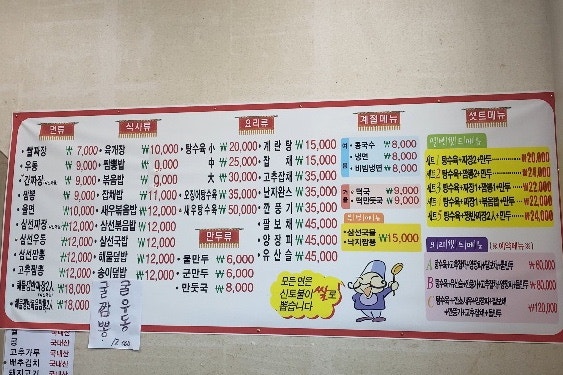 면류
• 쌀짜장 ₩ 7,000
• 우동 ₩ 9,000
• 간짜장 ₩ 9,000
• 짬뽕 ₩ 9,000
• 울면 ₩10,000
• 삼선짜장 ₩12,000
• 삼선우동 ₩12,000
• 삼선짬뽕 ₩12,000
• 고추짬뽕 ₩12,000
₩18,000
₩18,000
식사류
• 육개장 ₩10,000
• 짬뽕밥 ₩
• 볶음밥 ₩
• 잡채밥 ₩11,000
• 새우볶음밥 ₩12,000
• 삼선볶음밥 ₩12,000
• 삼선국밥 ₩12,000
• 해물덮밥 ₩12,000
• 송이덮밥 ₩12,000
요리류
• 탕수육 小 ₩ 20,000
中 ₩ 25,000
大 ₩ 30,000
• 오징어탕수육 ₩35,000
• 새우탕수육 ₩50,000
• 계란탕 ₩15,000
• 잡채 ₩15,000
• 고추잡채 ₩35,000
• 난자완스 ₩35,000
• 깐풍기 ₩35,000
• 팔보채 ₩45,000
• 양장피 ₩45,000
• 유산슬 ₩45,000
만두류
• 물만두 ₩ 6,000
• 군만두 ₩ 6,000
• 만둣국 ₩ 9,000
계절메뉴
여름
• 콩국수 ₩8,000
• 냉면 ₩8,000
• 비빔냉면 ₩8,000
겨울
• 떡국 ₩9,000
• 떡만둣국 ₩9,000
• 삼선국물
• 낙지짬뽕 ₩15,000
모든 면은
신토불이 쌀로
뽑습니다
셋트메뉴
세트1 탕수육+짜장2+만두 ₩20,000
세트2 탕수육+짬뽕2+만두 ₩24,000
세트3 탕수육+짜장1+짬뽕1+만두 ₩22,000
세트4 탕수육+짜장1+볶음밥1+만두 ₩22,000
세트5 탕수육+쟁반짜장2+만두 ₩24,000
요리세트메뉴
A ₩60,000
B ₩80,000
C ₩120,000
굴우동
굴짬뽕
쌀 국내산
콩 국내산
고추가루 국내산
• 배추김치 국내산